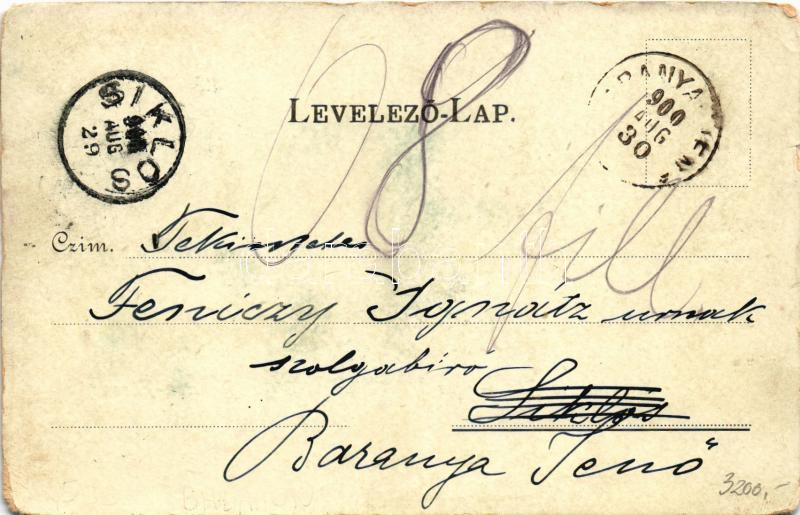 LEVELEZŐ-LAP.
SIKLÓS
900
AUG
29
BARANYA-JENŐ
900
AUG
30
68 fill
Czim. Tekintetes
Feniczy Ignátz urnak
szolgabiró
Siklós
Baranya Jenő
3200,-